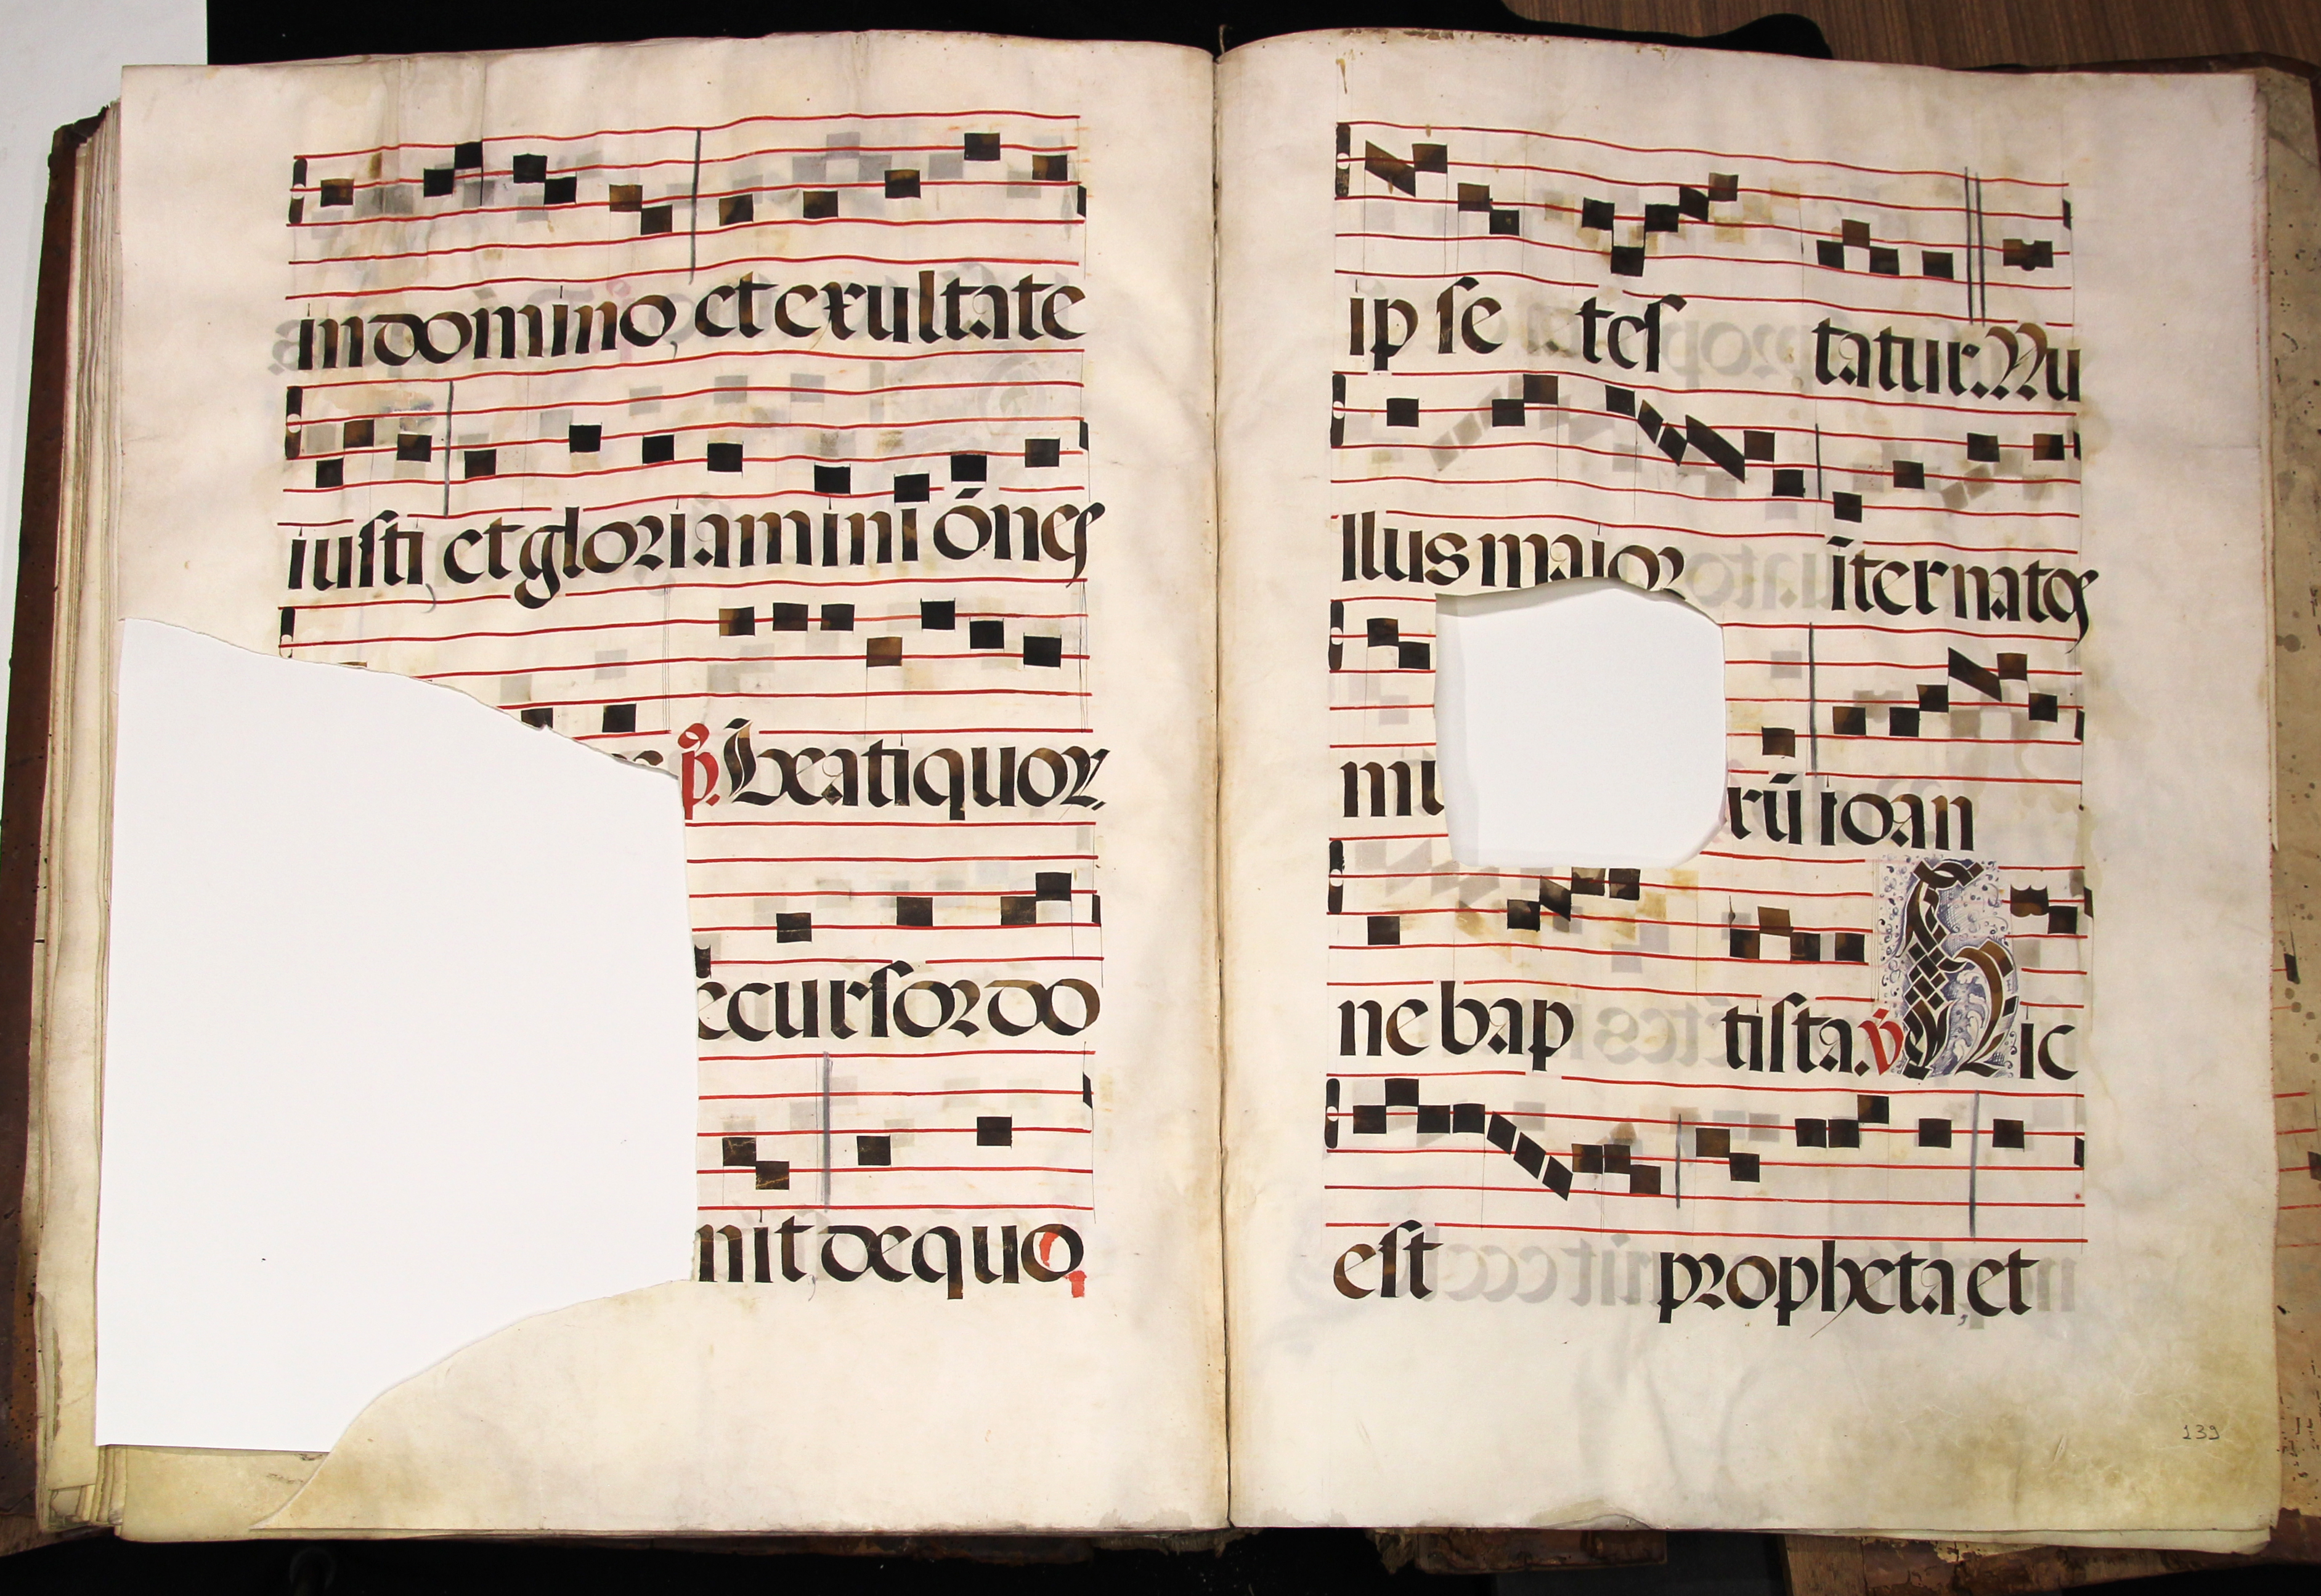 in domino, et exultate
iusti, et gloriamini ónes
p̄. Beati quor.
ecursor do
nit de quo
ip se tes tatur. Nu
llus maior īter natos
mu rū ioan
ne bap tista. v̄ Hic
est propheta, et
139